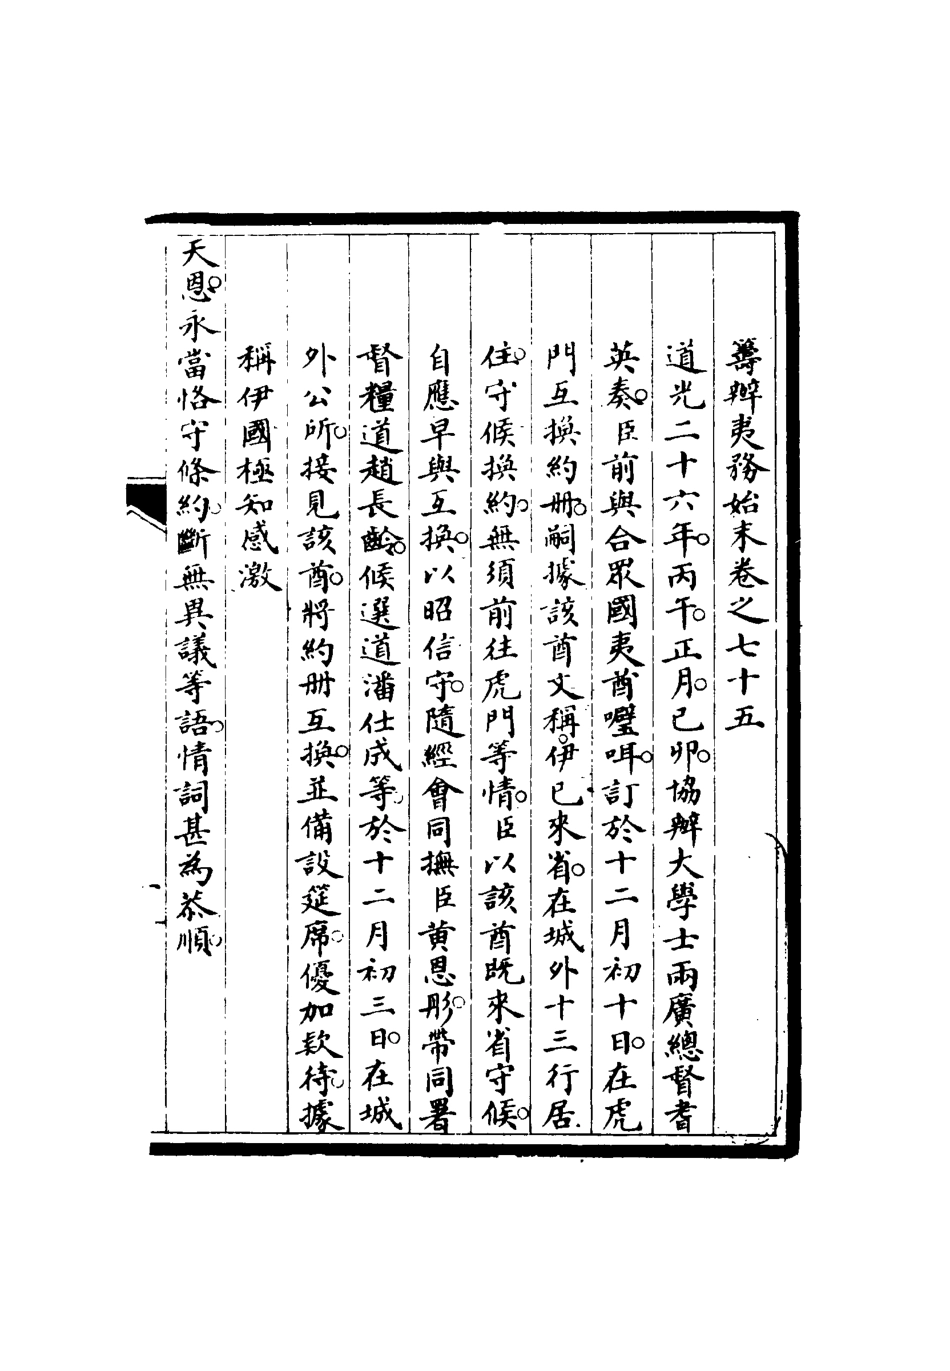 籌辦夷務始末卷之七十五
道光二十六年。丙午。正月。己卯。協辦大學士兩廣總督耆
英奏。臣前與合眾國夷酋㘑咡。訂於十二月初十日。在虎
門互換約冊。嗣據該酋文稱。伊已來省。在城外十三行居
住。守候換約。無須前往虎門等情。臣以該酋既來省守候。
自應早與互換。以昭信守。隨經會同撫臣黃恩彤。帶同署
督糧道趙長齡。候選道潘仕成等。於十二月初三日。在城
外公所。接見該酋。將約冊互換。並備設筵席。優加款待。據
稱伊國極知感激
天恩。永當恪守條約。斷無異議等語。情詞甚為恭順。